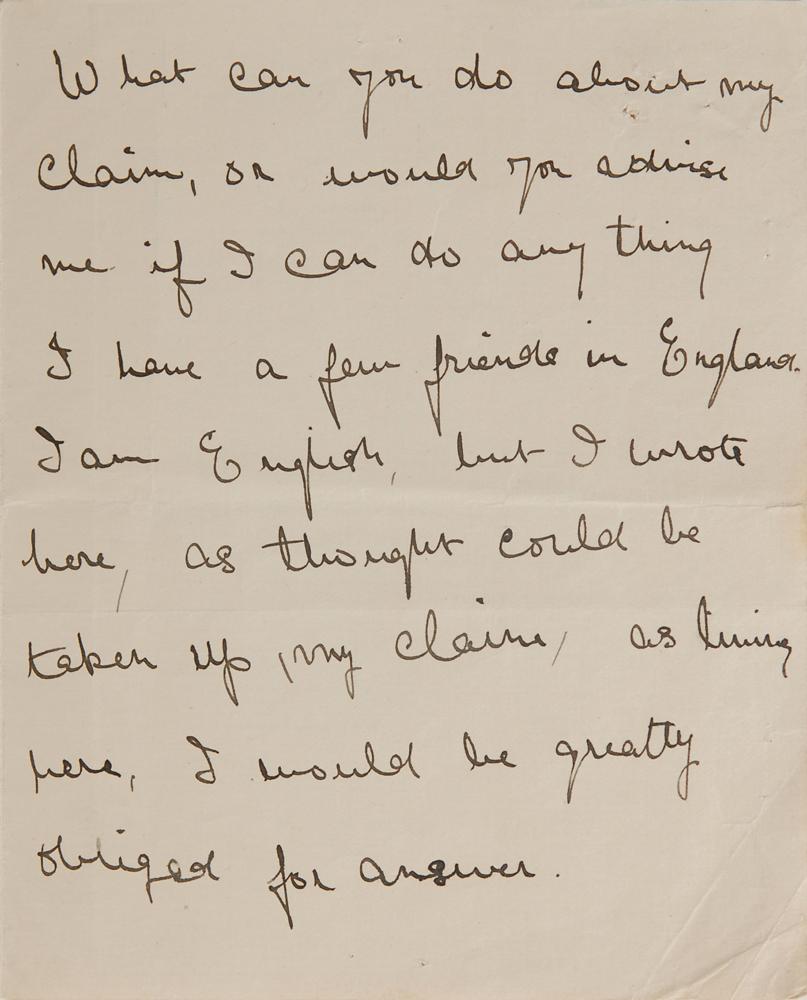 What can you do about my
claim, or would you advise
me if I can do any thing
I have a few friends in England.
I am English, but I wrote
here, as thought could be
taken up, my claim, as living
here, I would be greatly
obliged for answer.